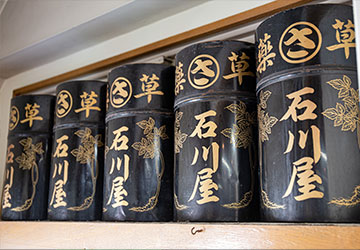 草
石川屋
さ草
石川屋
さ草
石川屋
薬さ草
石川屋
薬さ草
石川屋